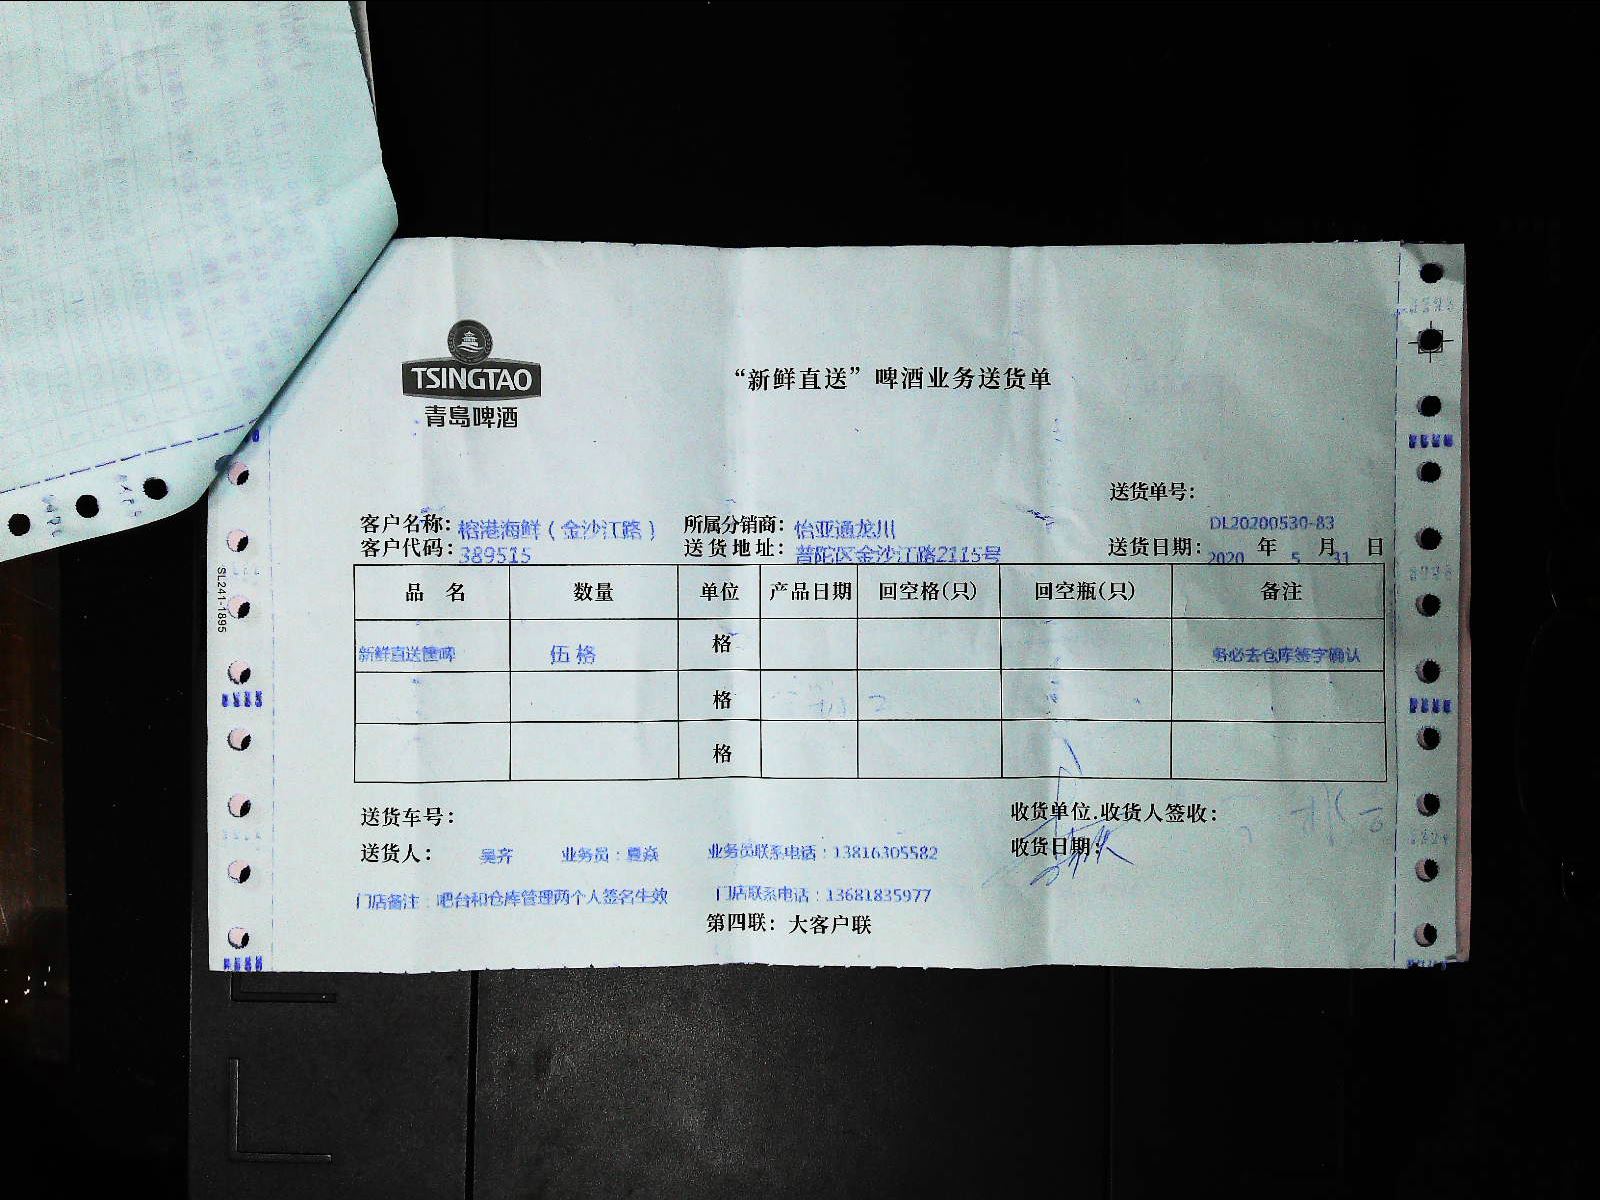 TSINGTAO
青岛啤酒
“新鲜直送”啤酒业务送货单
送货单号：
DL20200530-83
客户名称：榕港海鲜（金沙江路） 所属分销商：怡亚通龙川
客户代码：389515 送货地址：普陀区金沙江路2115号 送货日期：2020 年 5 月 31 日
品 名 数量 单位 产品日期 回空格(只) 回空瓶(只) 备注
新鲜直送 啤 伍格 格 务必去仓库签字确认
格
格
送货车号： 收货单位.收货人签收：
送货人： 吴齐 业务员：夏焱 业务员联系电话：13816305582 收货日期：
门店备注：吧台和仓库管理两个人签名生效 门店联系电话：13681835977
第四联：大客户联
SL241-1895